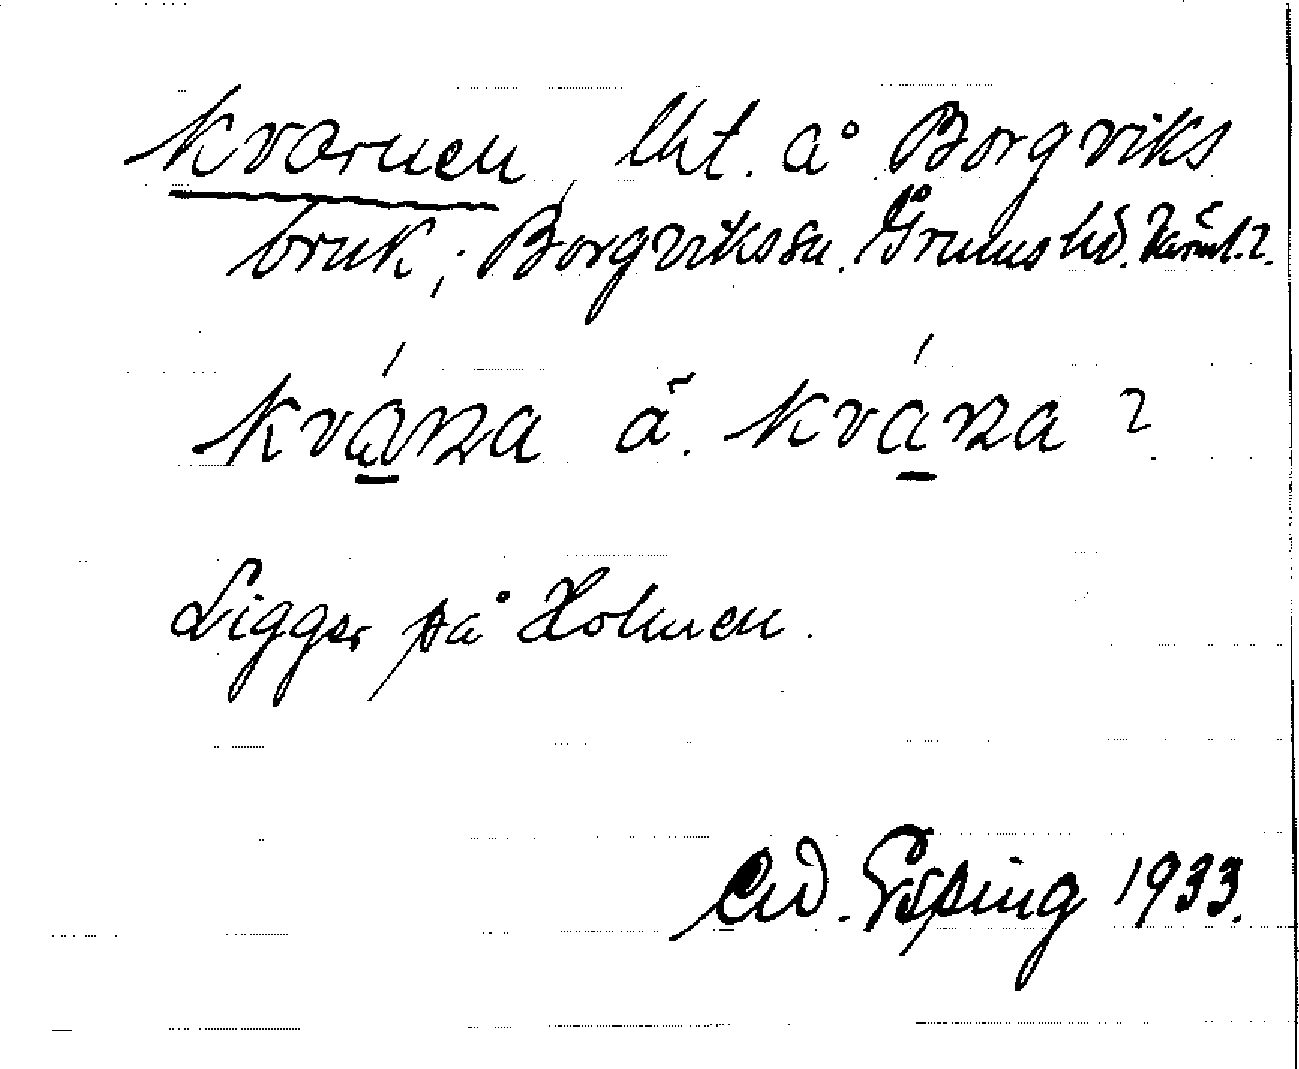 Kvarnen, lht. å Borgviks
bruk; Borgviks sn. Grums hd. Värml. l.
kvárna ä. kvárna l
Ligger på Holmen.
Cvd. Esping 1933.